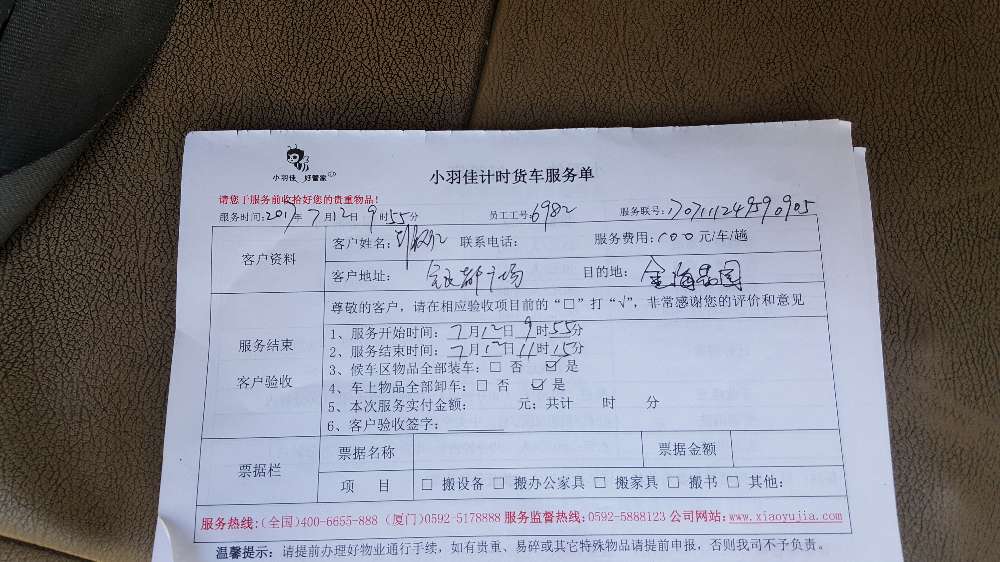 小羽佳 好管家
小羽佳计时货车服务单
请您于服务前收拾好您的贵重物品!
服务时间:2017年7月12日9时55分 员工工号:6982 服务联号:1707111249590905
客户资料
客户姓名: 联系电话: 服务费用:100元/车/趟
客户地址: 都市场 目的地:金海
服务结束
客户验收
尊敬的客户，请在相应验收项目前的“□”打“√”，非常感谢您的评价和意见
1、服务开始时间：7月12日9时55分
2、服务结束时间：7月12日11时15分
3、候车区物品全部装车：□ 否 ☑ 是
4、车上物品全部卸车：□ 否 ☑ 是
5、本次服务实付金额： 元；共计 时 分
6、客户验收签字：
票据栏
票据名称 票据金额
项 目 □ 搬设备 □ 搬办公家具 □ 搬家具 □ 搬书 □ 其他:
服务热线:(全国)400-6655-888 (厦门)0592-5178888 服务监督热线:0592-5888123 公司网站:www.xiaoyujia.com
温馨提示：请提前办理好物业通行手续，如有贵重、易碎或其它特殊物品请提前申报，否则我司不予负责。